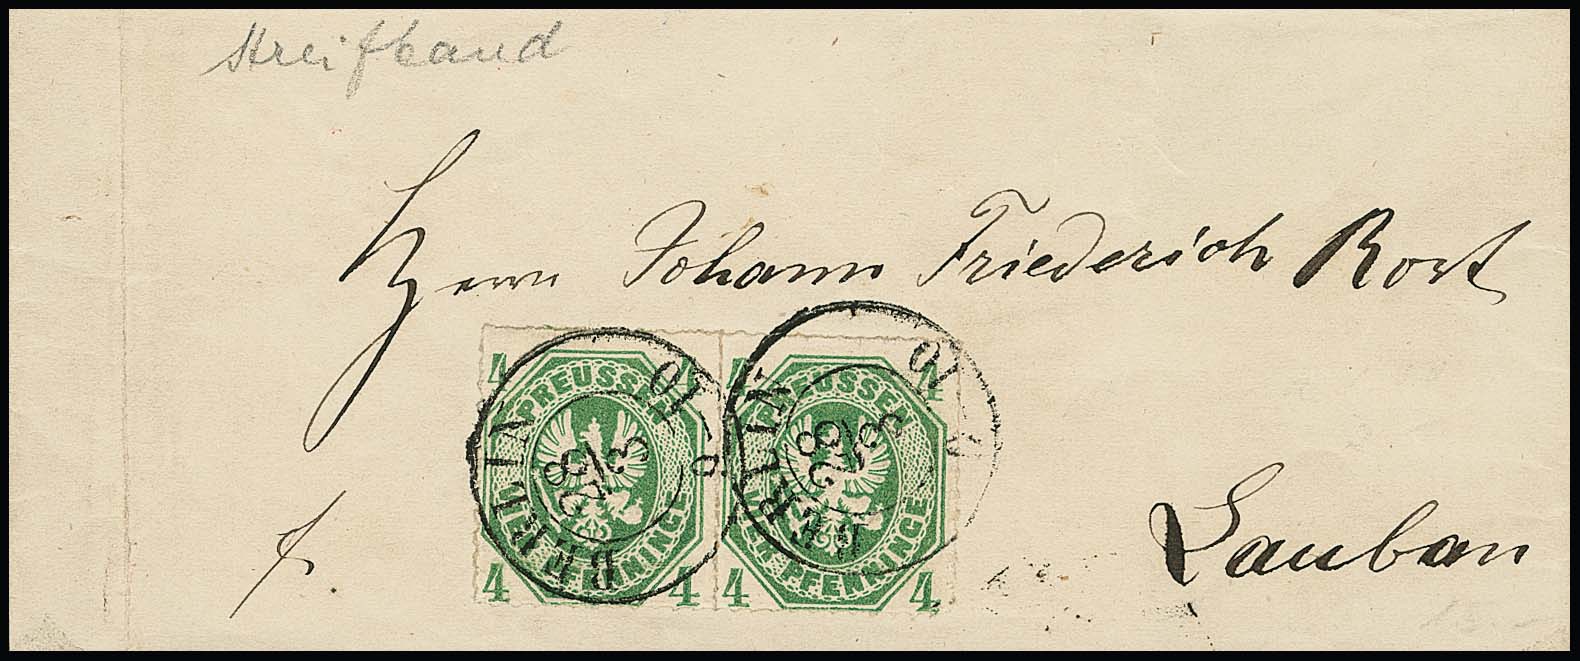 Streifband
Herrn Johann Friederich Rost
4 4 4 4
PREUSSEN PREUSSEN
BERLIN 28/3 9-10
BERLIN 28/3 9-10
VIER PFENNINGE VIER PFENNINGE
4 4 4 4
f.
Lauban